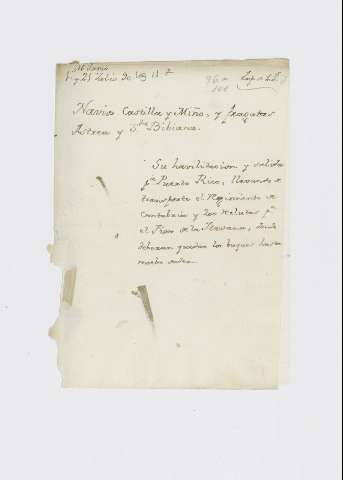 y 21 Julio de
Navios Castilla y Miño, y fragatas
Astrea y S.ta Bibiana.
Su havilitacion y salida
p.a Puerto Rico, llevando de
transporte el Regimiento de
Cantabria y los reclutas p.a
el Fixo de la Havana, donde
deberan quedar los buques hasta
nueba orden.